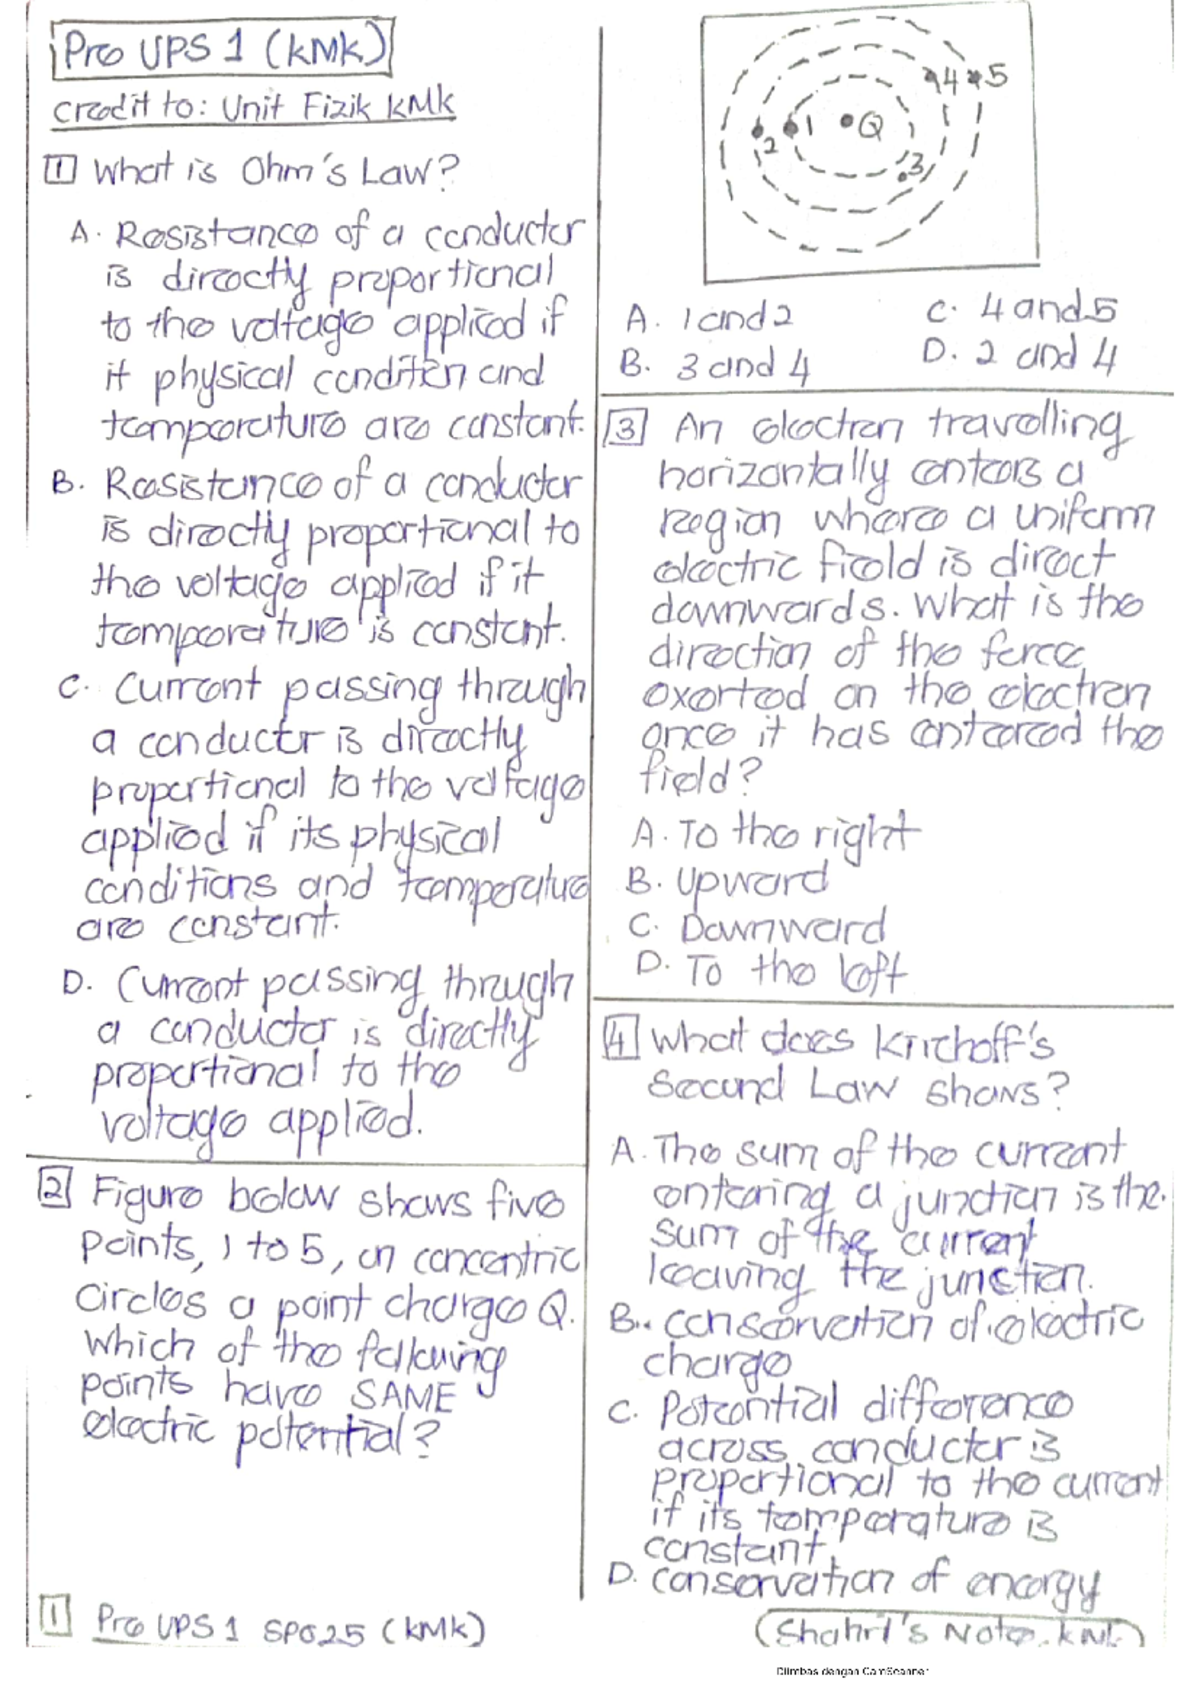 Pre UPS 1 (KMK)
Credit to: Unit Fizik KMK
1 What is Ohm's Law?
A. Resistance of a conductor
is directly proportional
to the voltage applied if
it physical condition and
temperature are constant.
B. Resistance of a conductor
is directly proportional to
the voltage applied if it
temperature is constant.
C. Current passing through
a conductor is directly
proportional to the voltage
applied if its physical
conditions and temperature
are constant.
D. Current passing through
a conductor is directly
proportional to the
voltage applied.
2 Figure below shows five
points, 1 to 5, on concentric
circles a point charge Q.
Which of the following
points have SAME
electric potential?
1 Pre UPS 1 SP025 (KMK)
4 5
1 Q
2
3
A. 1 and 2 C. 4 and 5
B. 3 and 4 D. 2 and 4
3 An electron travelling
horizontally enters a
region where a uniform
electric field is direct
downwards. What is the
direction of the force
exerted on the electron
once it has entered the
field?
A. To the right
B. Upward
C. Downward
D. To the left
4 What does Kirchoff's
Second Law shows?
A. The sum of the current
entering a junction is the
sum of the current
leaving the junction.
B. Conservation of electric
charge
C. Potential difference
across conductor is
proportional to the current
if its temperature is
constant.
D. Conservation of energy
Shahril's Note. KMK
Diimbas dengan CamScanner